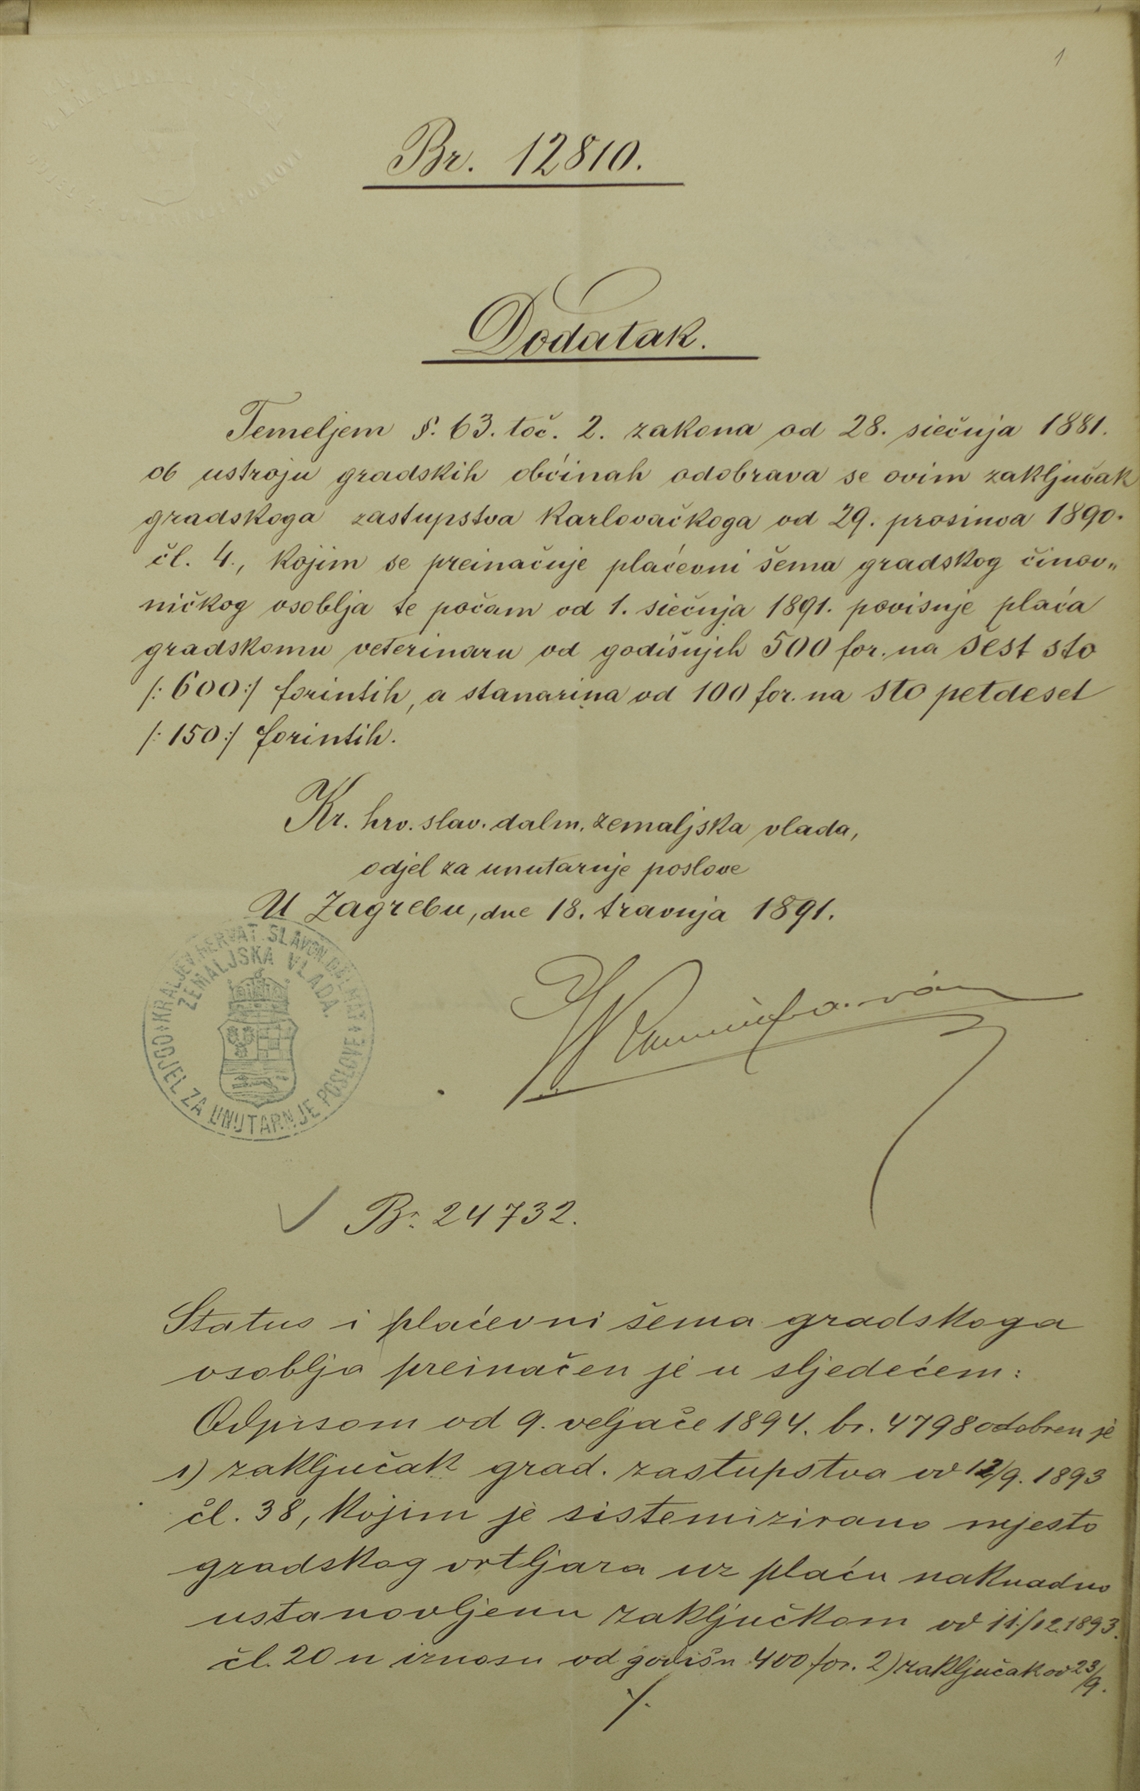 1
Br. 12810.
Dodatak.
Temeljem §. 63. toč. 2. zakona od 28. siečnja 1881.
ob ustroju gradskih obćinah odobrava se ovim zaključak
gradskoga zastupstva karlovačkoga od 29. prosinca 1890.
čl. 4., kojim se preinačuje plaćevni šema gradskog činov„
ničkog osoblja te počam od 1. siečnja 1891. povisuje plaća
gradskomu veterinaru od godišnjih 500 for. na šest sto
/: 600 :/ forintih, a stanarina od 100 for. na sto petdeset
/: 150 :/ forintih.
Kr. hrv. slav. dalm. zemaljska vlada,
odjel za unutarnje poslove
U Zagrebu, dne 18. travnja 1891.
KRALJEV. HERVAT. SLAVON. DALMAT.
ZEMALJSKA VLADA.
ODJEL ZA UNUTARNJE POSLOVE
Br. 24732.
Status i plaćevni šema gradskoga
osoblja preinačen je u sljedećem:
Odpisom od 9. veljače 1894. br. 4798 odobren je
1) zaključak grad. zastupstva od /9. 1893
čl. 38, kojim je sistemizirano mjesto
gradskog vrtljara uz plaću naknadno
ustanovljenu zaključkom od 11./12.1893.
čl. 20 u iznosu od godišn. 400 for. 2) zaključak od 23/9.
./.